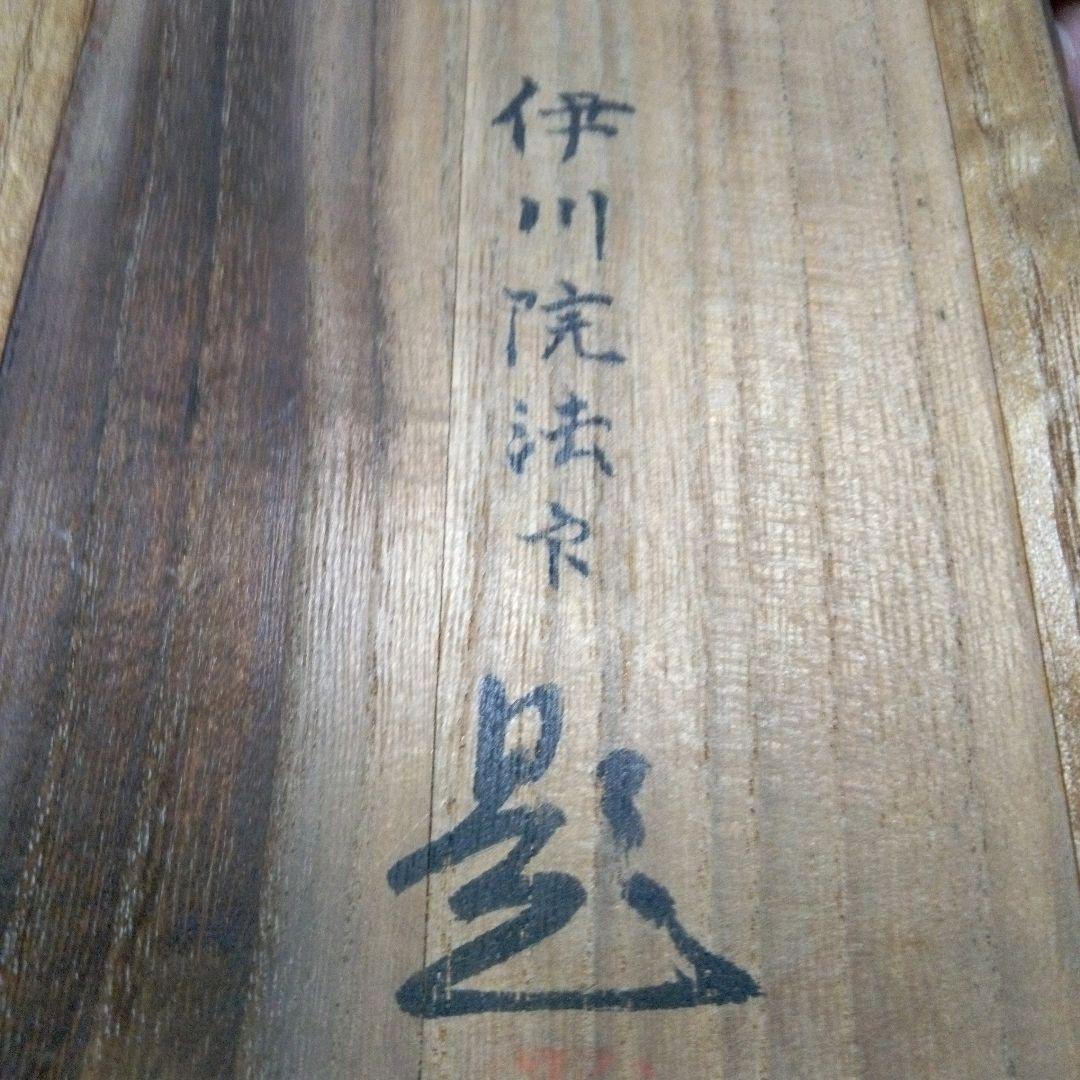 伊川院法印
題